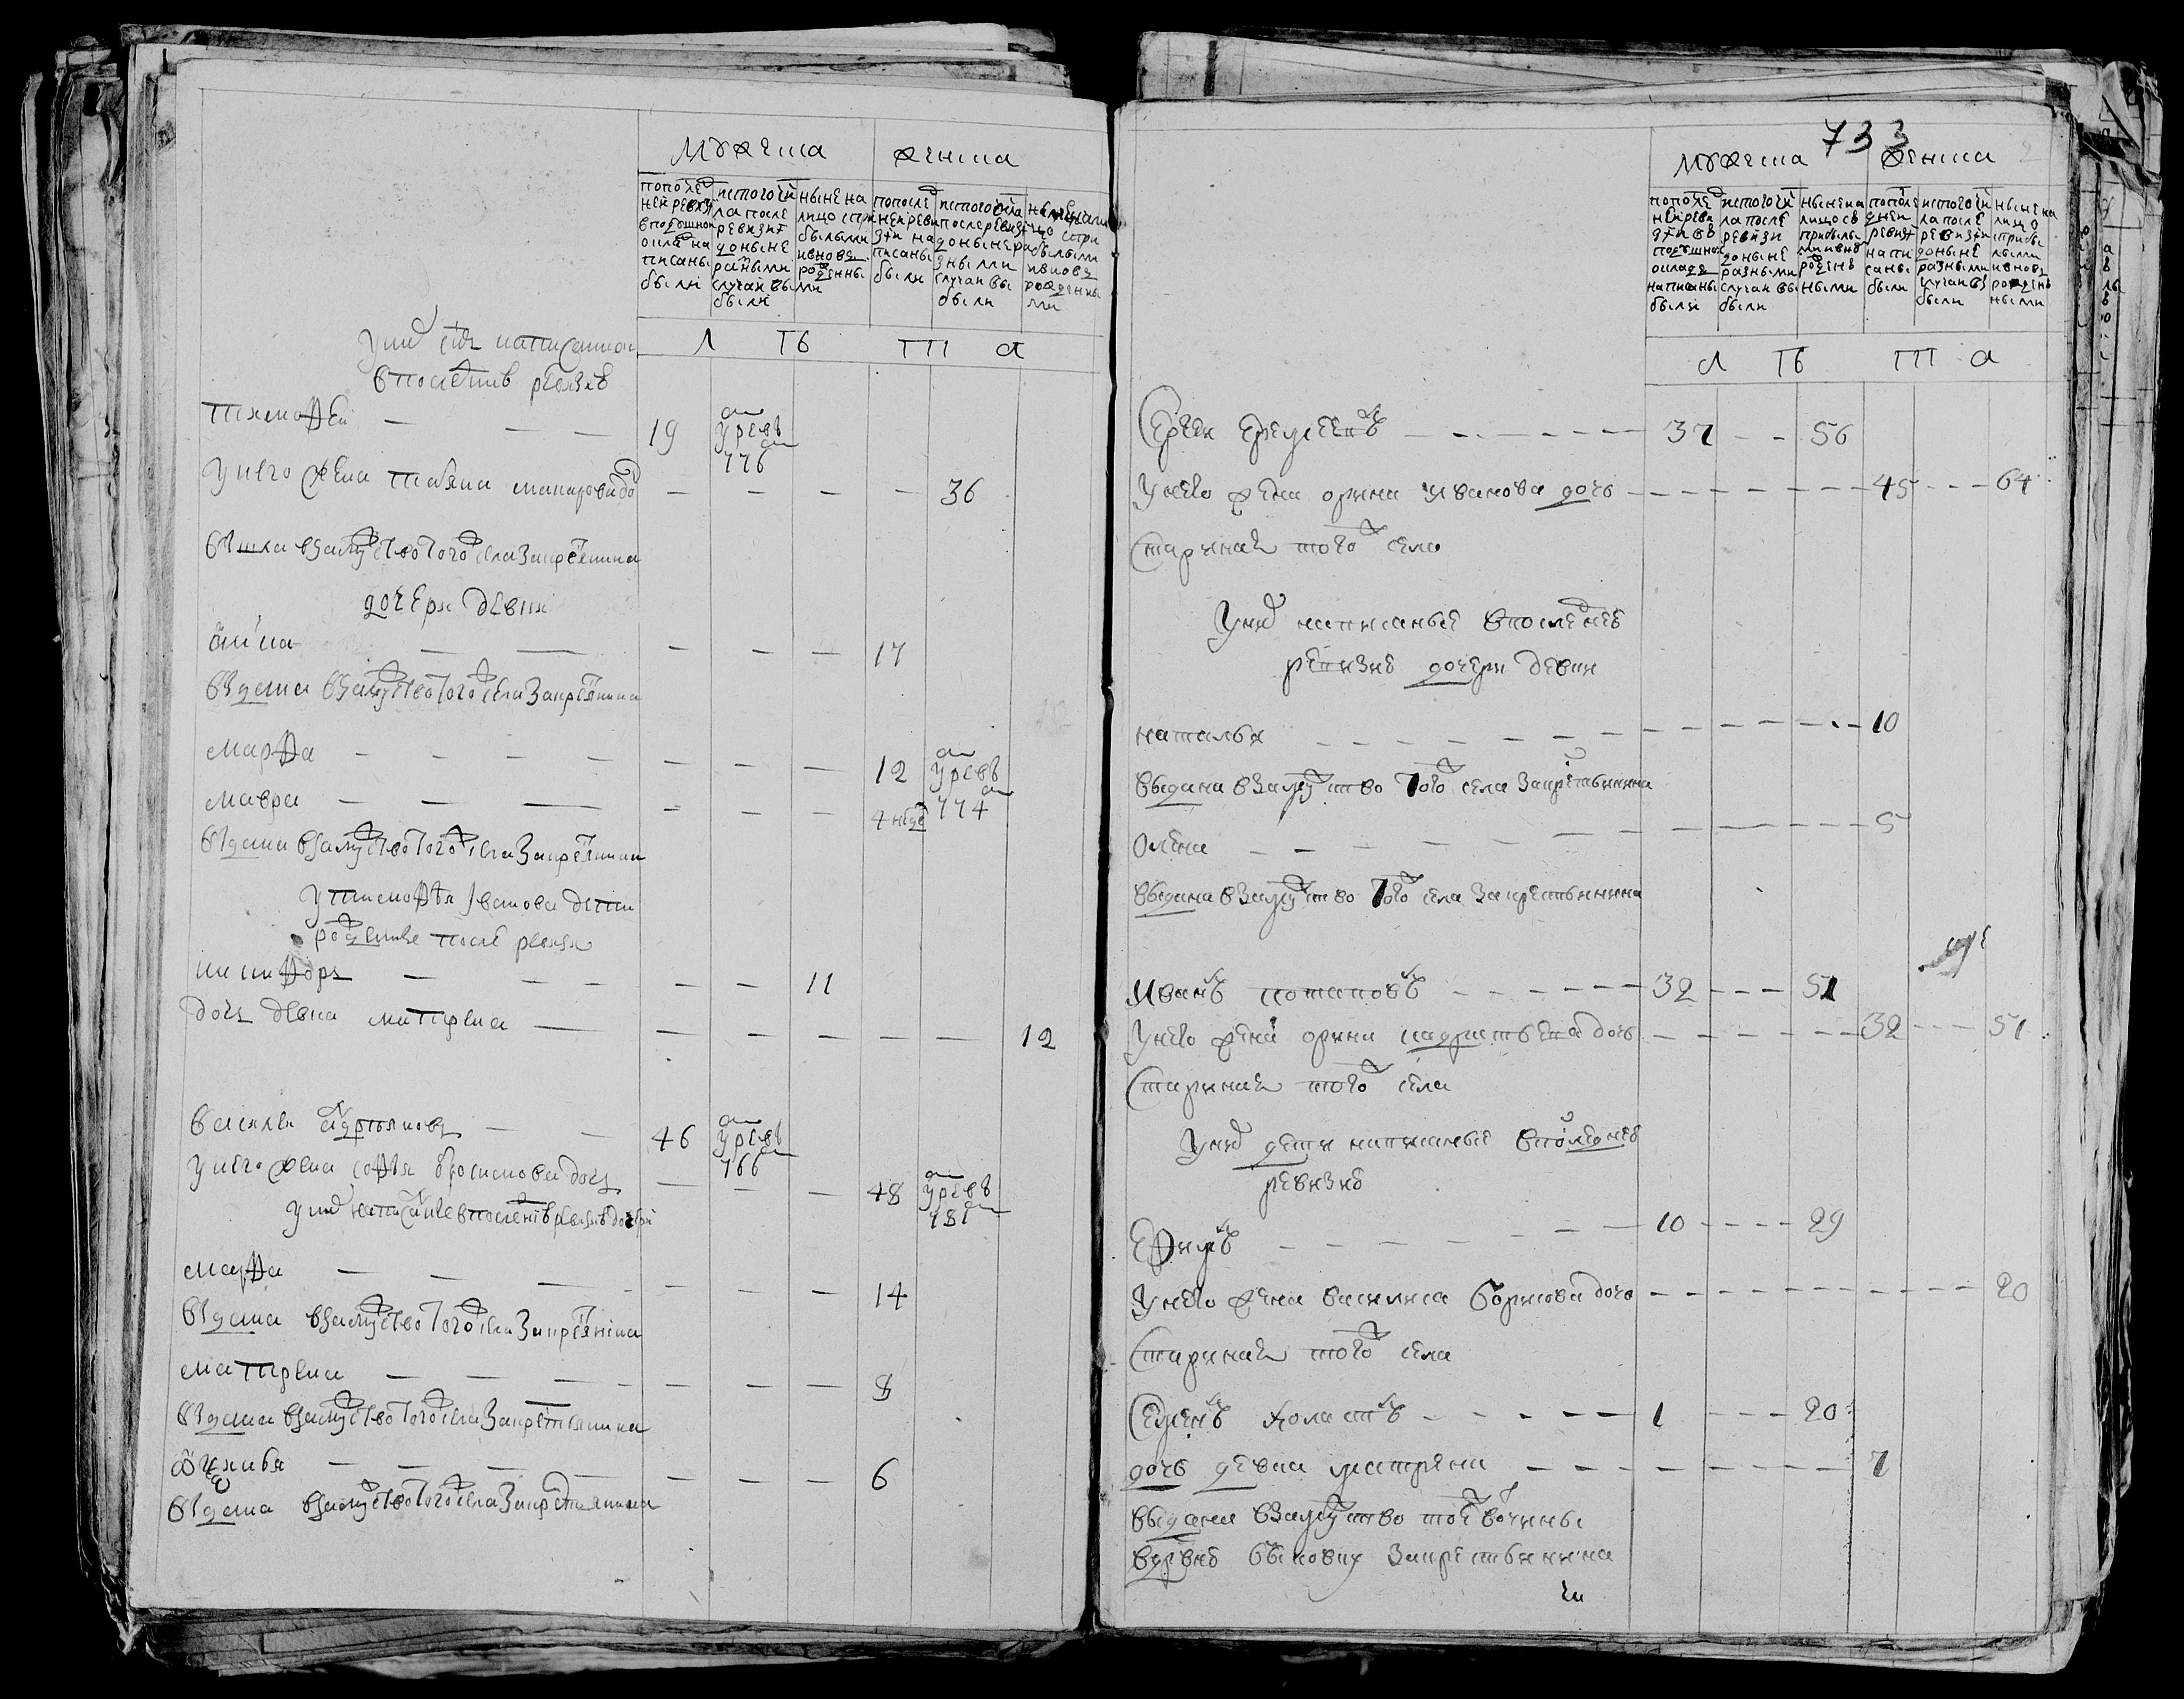 мужеска
женска
по после
ней ревизи
в подушной
оклад на
писаны
были
ис того чи
ла после
ревизи
до ныне
разными
случаи вы
были
ныне на
лицо с при
былыми
и вновь
рожденны
ми
по после
ней реви
зіи на
писаны
были
ис того чила
после ревизи
до ныне ра
зными
случаи вы
были
ныне на ли
цо с при
былыми
и вновь
рожденны
ми
л тъ
л тъ
у них сын написанной
в последней ревизиі
тимофей — — — 19 умре в 776
у него жена татьяна макарова до — — — — 36
вышла в замужство того ж села за крестьянина
дочери девки
анна — — — — — 17
выдана в замужство того ж села за крестьянина
марфа — — — — — — — 12 умре в 774
мавра — — — — — — 4 недѣ
выдана в замужство того ж села за крестьянина
у тимофея иванова дети
рожденые после ревизи
никифоръ — — — — — 11
дочь девка матрена — — — — — — 12
василей андреяновъ — — 46 умре в 766
у него жена софья дочь — — — 48 умре в 781
у них написаные в последней ревизиі дочери
марфа — — — — — — 14
выдана в замужство того ж села за крестьянина
матрена — — — — — — — 8
выдана в замужство того ж села за крестьянина
— — — — — — — 6
выдана в замужство того ж села за крестьянина
733
мужеска
женска
по после
дней реви
зіи въ
подушной
окладъ
написаны
были
ис того чи
ла после
ревизи
до ныне
разными
случаи вы
были
ныне на
лицо съ
прибылы
ми и вновь
рожден
ными
по после
дней
ревизи
напи
саны
были
ис того чи
ла после
ревизіи
до ныне
разными
случаи вы
были
ныне на
лицо
с прибы
лыми
и вновь
рожден
ными
л тъ
л тъ
Сергей Еремеевъ — — — — 37 — — 56
У нево жена орина Иванова дочь — — — — 45 — — — 64
Старинная того ж села
У них написаныѣ в последней
ревизиі дочери девки
наталья — — — — — — — — 10
выдана в замужство того ж села за крестьянина
Олена — — — — — — — — 5
выдана в замужство того ж села за крестьянина
Иванъ потаповъ — — — — 32 — — — 51
У нево жена орина дочь — — — — 32 — — — 51
Старинная того ж села
У них дети написаныѣ в последней
ревизиі
Ефимъ — — — — — — 10 — — — 29
У нево жена василиса Борисова дочь — — — — — — 20
Старинная того ж села
Семенъ холостъ — — — — 1 — — — 20
дочь девка матрена — — — — — — — 7
выдана в замужство той ж вотчины
в дрвню быковку за крестьянина